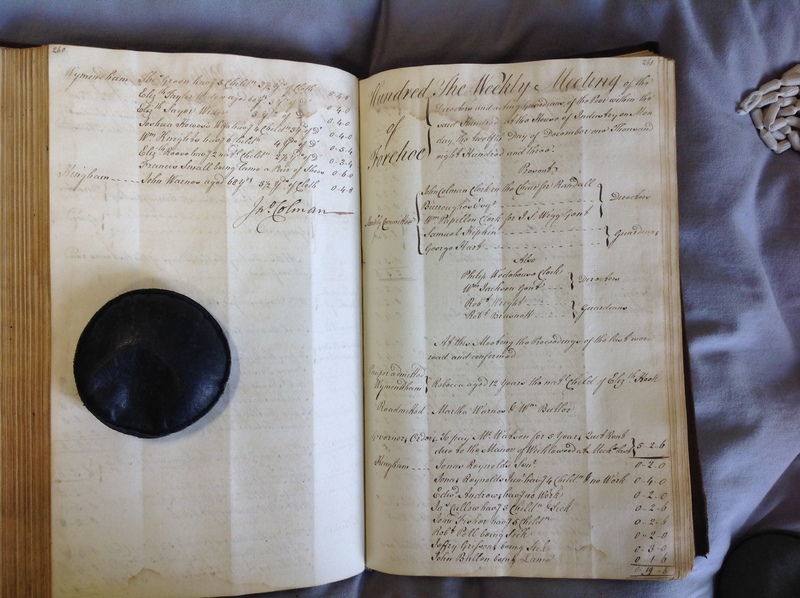 260
Wymondham Tho.s Green hav.g 5 Child.n 3½ y.ds of Cloth 0-4-0
Eliz.th Taylor
Eliz.th Sayer Widow 0-4-0
Joshua Howard hav.g 4 Child.n 0-4-0
W.m Wright hav.g 6 Child.n 4 y.ds of D.o 0-5-4
Eliz.th 2 nat.l Child.n 2½ y.ds of D.o 0-3-4
Frances Small being lame a Pair of Shoes 0-6-0
Hingham John Warnes aged 60 5½ y.ds of Cloth
Jn.o Colman
261
Hundred of Forehoe
The Weekly Meeting of the
Directors and acting Guardians of the Poor within the
said Hundred at the House of Industry on Mon
day the twelfth Day of December one Thousand
eight Hundred and three.
Present
John Colman Clerk in the Chair for Randall
Burroughes Esq.r
W.m Papillon Clerk for J. S. Wigg Gent
Directors
Weekly Committee
Samuel Kipkin
George Hart
Guardians
Also
Philip Wodehouse Clerk
W.m Jackson Gent
Directors
Rob.t Wright
Rob.t
Guardians
At this Meeting the Proceedings of the last were
read and confirmed
Pauper admitted Wymondham
Rebecca aged 12 Years the nat.l Child of Eliz.th Hook
Readmitted Martha Warnes & W.m Butler
Governor Orders To pay M.r Watson for 5 Years Quit Rent
due to the Manor of Wicklewood at Mich.s last 5-2-6
Hingham Jonas Reynolds Sen.r 0-2-0
Jonas Reynolds Jun.r hav.g 4 Child.n & no Work 0-4-0
Edw.d Andrews hav.g no Work 0-2-0
Ja.s Cullow hav.g 3 Child.n & Sick 0-2-6
John Fisher hav.g 5 Child.n 0-2-6
Rob.t Poll being Sick 0-2-0
Jeffry being Sick 0-3-0
John Bullen being Lame 0-1-6
0-19-6